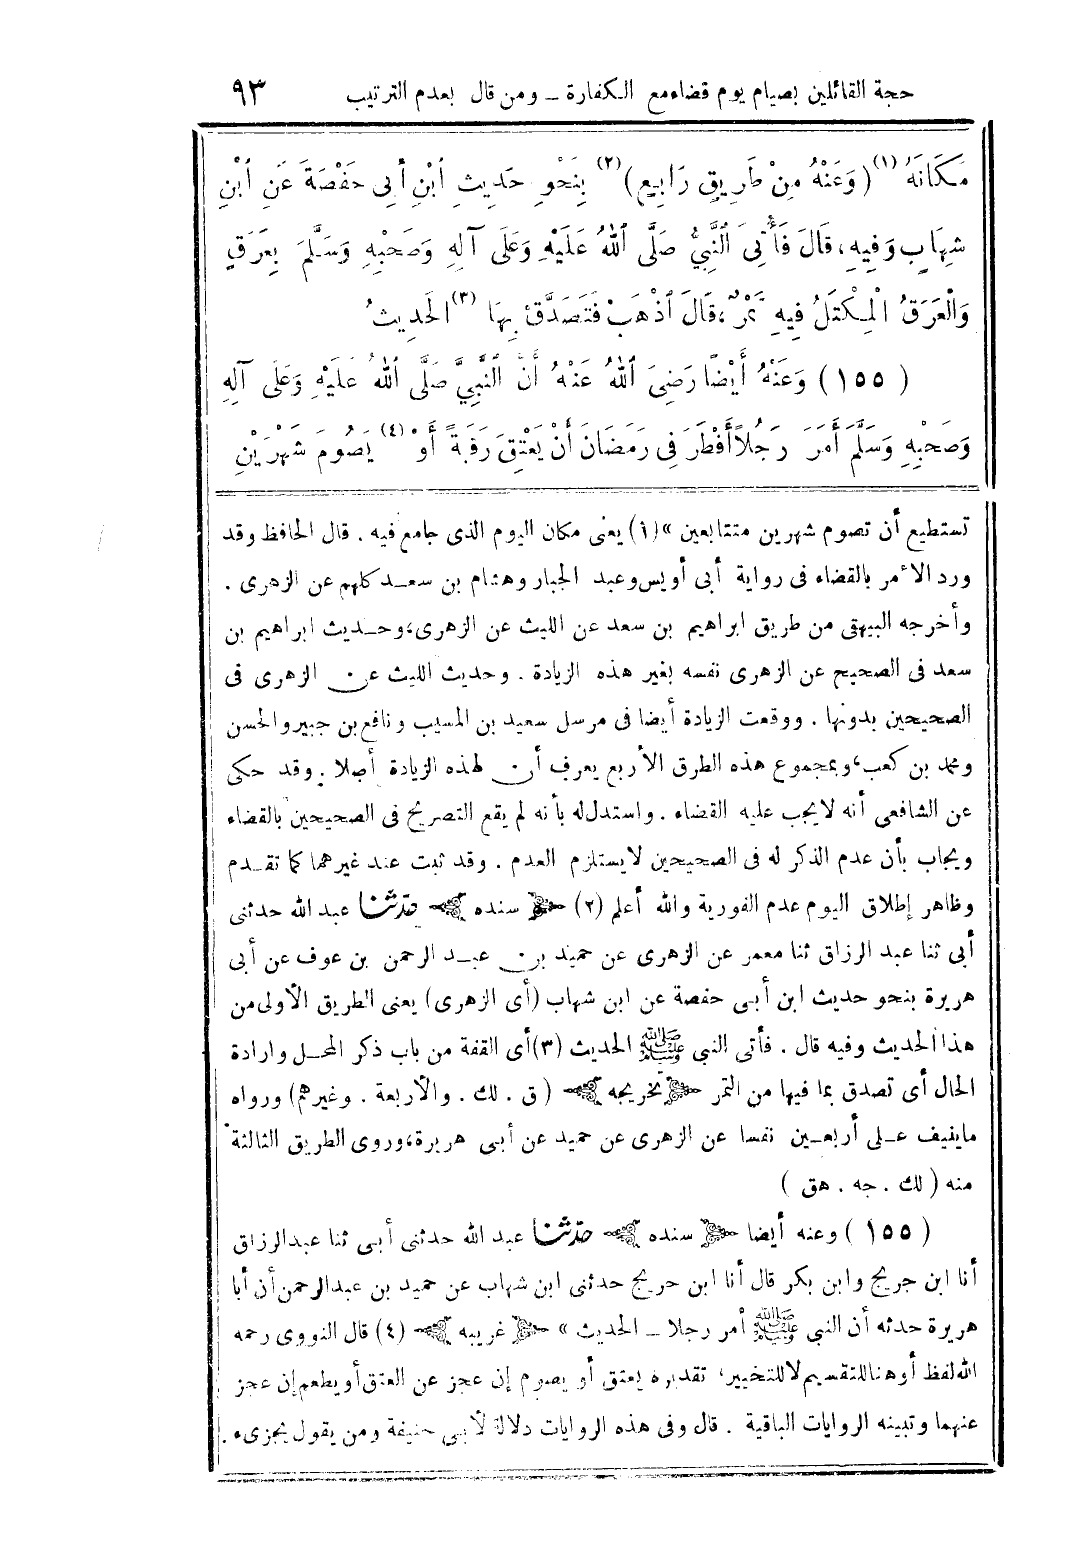 حجة القائلين بصيام يوم قضاء مع الكفارة ــ ومن قال بعدم الترتيب ٩٣
مَكَانَهُ (١) (وَعَنْهُ مِنْ طَرِيقٍ رَابِعٍ) (٢) بِنَحْوِ حَدِيثِ ابْنِ أَبِى حَفْصَةَ عَنِ ابْنِ
شِهَابٍ وَفِيهِ، قَالَ فَأُتِىَ النَّبِيُّ صَلَّى اللهُ عَلَيْهِ وَعَلَى آلِهِ وَصَحْبِهِ وَسَلَّمَ بِعَرَقٍ
وَالْعَرَقُ الْمِكْتَلُ فِيهِ تَمْرٌ، قَالَ اذْهَبْ فَتَصَدَّقْ بِهَا (٣) الحَدِيثُ
(١٥٥) وَعَنْهُ أَيْضًا رَضِىَ اللهُ عَنْهُ أَنَّ النَّبِيَّ صَلَّى اللهُ عَلَيْهِ وَعَلَى آلِهِ
وَصَحْبِهِ وَسَلَّمَ أَمَرَ رَجُلاً أَفْطَرَ فِى رَمَضَانَ أَنْ يَعْتِقَ رَقَبَةً أَوْ (٤) يَصُومَ شَهْرَيْنِ
تستطيع أن تصوم شهرين متتابعين » (١) يعنى مكان اليوم الذى جامع فيه . قال الحافظ وقد
ورد الأمر بالقضاء فى رواية أبى أويس وعبد الجبار وهشام بن سعد كلهم عن الزهرى .
وأخرجه البيهقى من طريق ابراهيم بن سعد عن الليث عن الزهرى، وحديث ابراهيم بن
سعد فى الصحيح عن الزهرى نفسه بغير هذه الزيادة . وحديث الليث عن الزهرى فى
الصحيحين بدونها . ووقعت الزيادة أيضا فى مرسل سعيد بن المسيب ونافع بن جبير والحسن
ومحمد بن كعب، وبمجموع هذه الطرق الأربع يعرف أن لهذه الزيادة أصلا . وقد حكى
عن الشافعى أنه لا يجب عليه القضاء . واستدل له بأنه لم يقع التصريح فى الصحيحين بالقضاء
ويجاب بأن عدم الذكر له فى الصحيحين لا يستلزم العدم . وقد ثبت عند غيرهما كما تقدم
وظاهر إطلاق اليوم عدم الفورية والله أعلم (٢) سنده حدّثنا عبد الله حدثنى
أبى ثنا عبد الرزاق ثنا معمر عن الزهرى عن حميد بن عبد الرحمن بن عوف عن أبى
هريرة بنحو حديث ابن أبى حفصة عن ابن شهاب (أى الزهرى) يعنى الطريق الأولى من
هذا الحديث وفيه قال . فأتى النبي ﷺ الحديث (٣) أى القفة من باب ذكر المحل وارادة
الحال أى تصدق بما فيها من التمر تخريجه (ق . لك . والأربعة . وغيرهم) ورواه
ما ينيف على أربعين نفسا عن الزهرى عن حميد عن أبى هريرة، وروى الطريق الثالثة
منه (لك . جه . هق)
(١٥٥) وعنه أيضا سنده حدّثنا عبد الله حدثنى أبى ثنا عبد الرزاق
أنا ابن جريج وابن بكر قال أنا ابن جريج حدثنى ابن شهاب عن حميد بن عبد الرحمن أن أبا
هريرة حدثه أن النبي ﷺ أمر رجلا ــ الحديث » غريبه (٤) قال النووى رحمه
الله لفظ أو هنا للتقسيم لا للتخيير، تقديره يعتق أو يصوم إن عجز عن العتق أو يطعم إن عجز
عنهما وتبينه الروايات الباقية . قال وفى هذه الروايات دلالة لأبى حنيفة ومن يقول يجزىء .